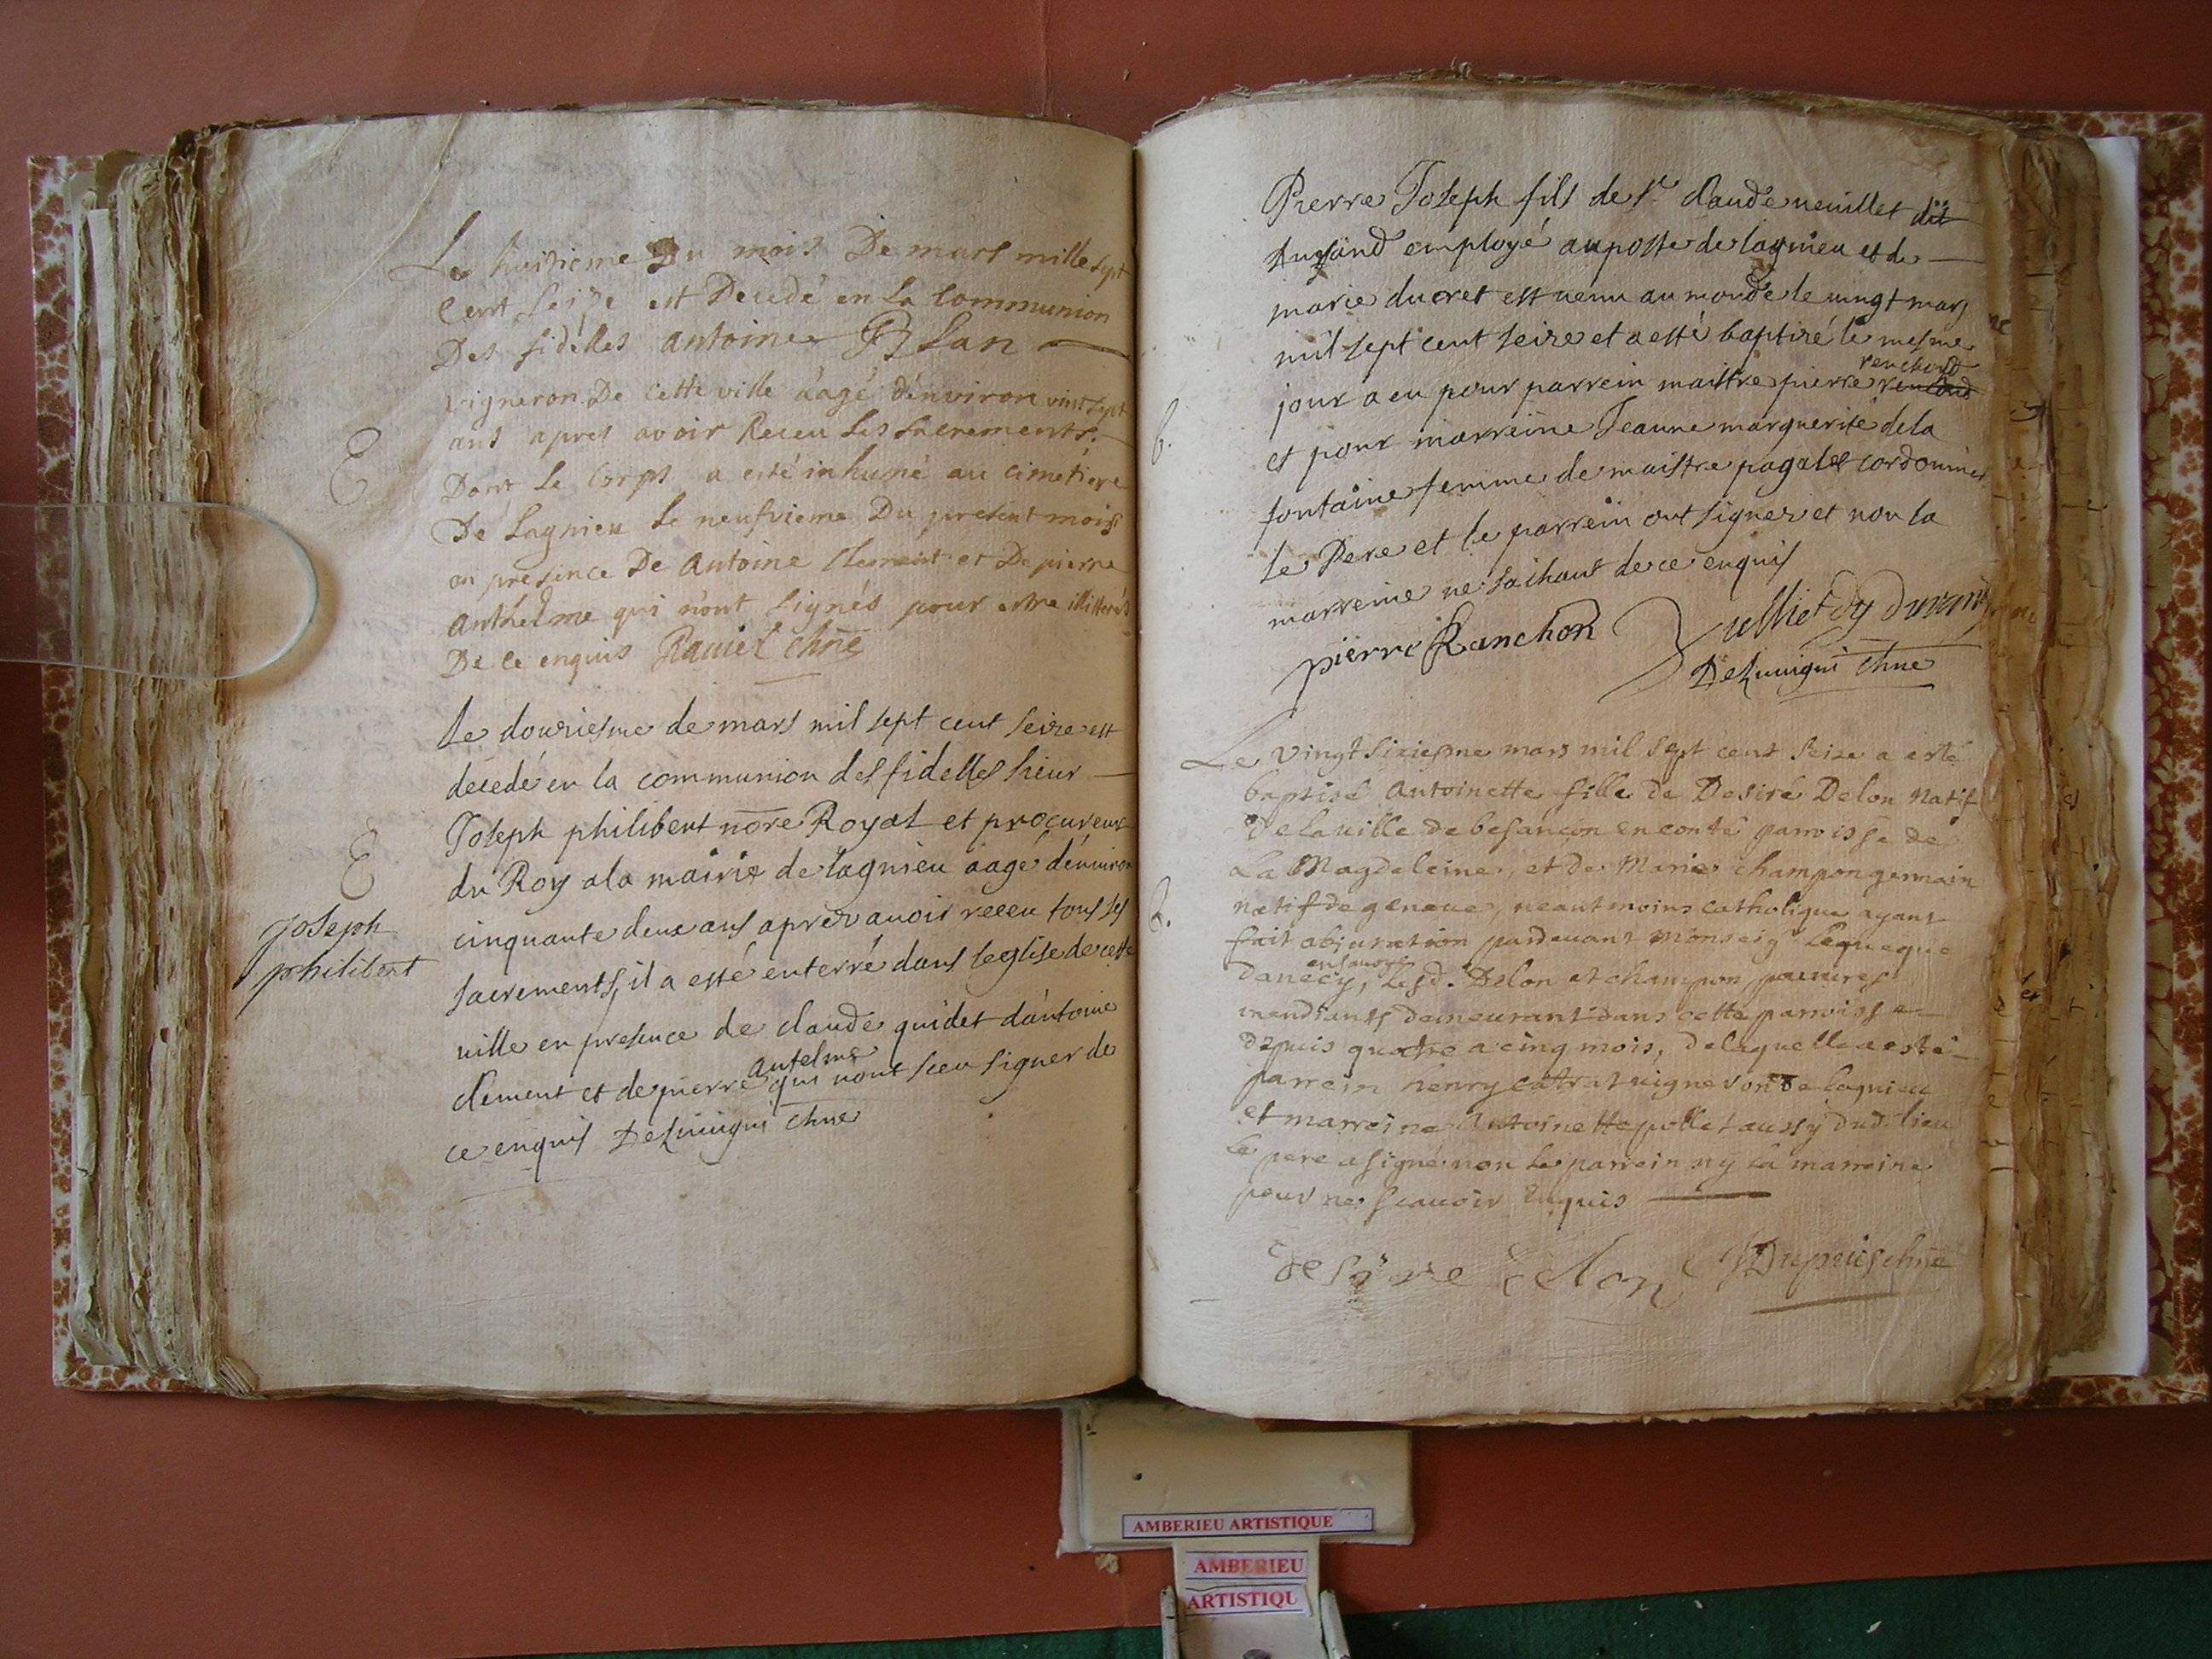 Le huitieme Du mois De mars mille sept
Cent seize est Decedé en La Communion
Des fidelles antoine
vigneron De cette ville aagé denviron vint sept
ans apres avoir Receu Les sacrements.
Dont Le Corps a esté inhumé au cimetiere
De Lagnieu Le neufvieme Du present mois
en presence De Antoine Clement et De pierre
Anthelme qui n'ont signés pour estre illitterés
De ce enquis Raviel chñe
E
Le douziesme de mars mil sept cent seize est
decedé en la communion des fidelles sieur
Joseph philibert nõre Royal et procureur
du Roy a la mairie de lagnieu aagé d'environ
cinquante deux ans aprez avoir receu tous les
sacrements, il a esté enterré dans leglise de cette
ville en presence de claude guidet d'antoine
clement et de pierre antelme qui nont sceu signer de
ce enquis chñe
E
Joseph
philibert
Pierre Joseph fils de sr claude veuillet dit
employé au poste de lagnieu et de
marie ducret est venu au monde le vingt mars
mil sept cent seize et a esté baptizé le mesme
jour a eu pour parrein maistre pierre renchond
et pour marreine Jeanne marguerite de la
fontaine femme de maistre pagalet cordonnier
Le Pere et le parrein ont signez et non la
marreine ne sachant de ce enquis
pierre Ranchon
chñe
b.
Le vingt sixiesme mars mil sept cent seize a esté
baptisé Antoinette fille de Desiré Delon Natif
de la ville de besançon en conté paroisse de
La Magdeleine, et de Marie champon germain
natif de geneve, neantmoins catholique ayant
fait abjuration pardevant Monseigr Leveque
danecy, en savoye Lesd. Delon et champon pauvres
mendiants demeurant dans cette paroisse
depuis quatre a cinq mois, de laquelle a esté
parrein henry catrat vigneron de lagnieu
et marreine Antoinette pollet aussy dud. lieu
le pere a signé non le parrein ny la marreine
pour ne scavoir Enquis
b.
desire delon Dupuis chñe
AMBERIEU ARTISTIQUE
AMBERIEU
ARTISTIQU